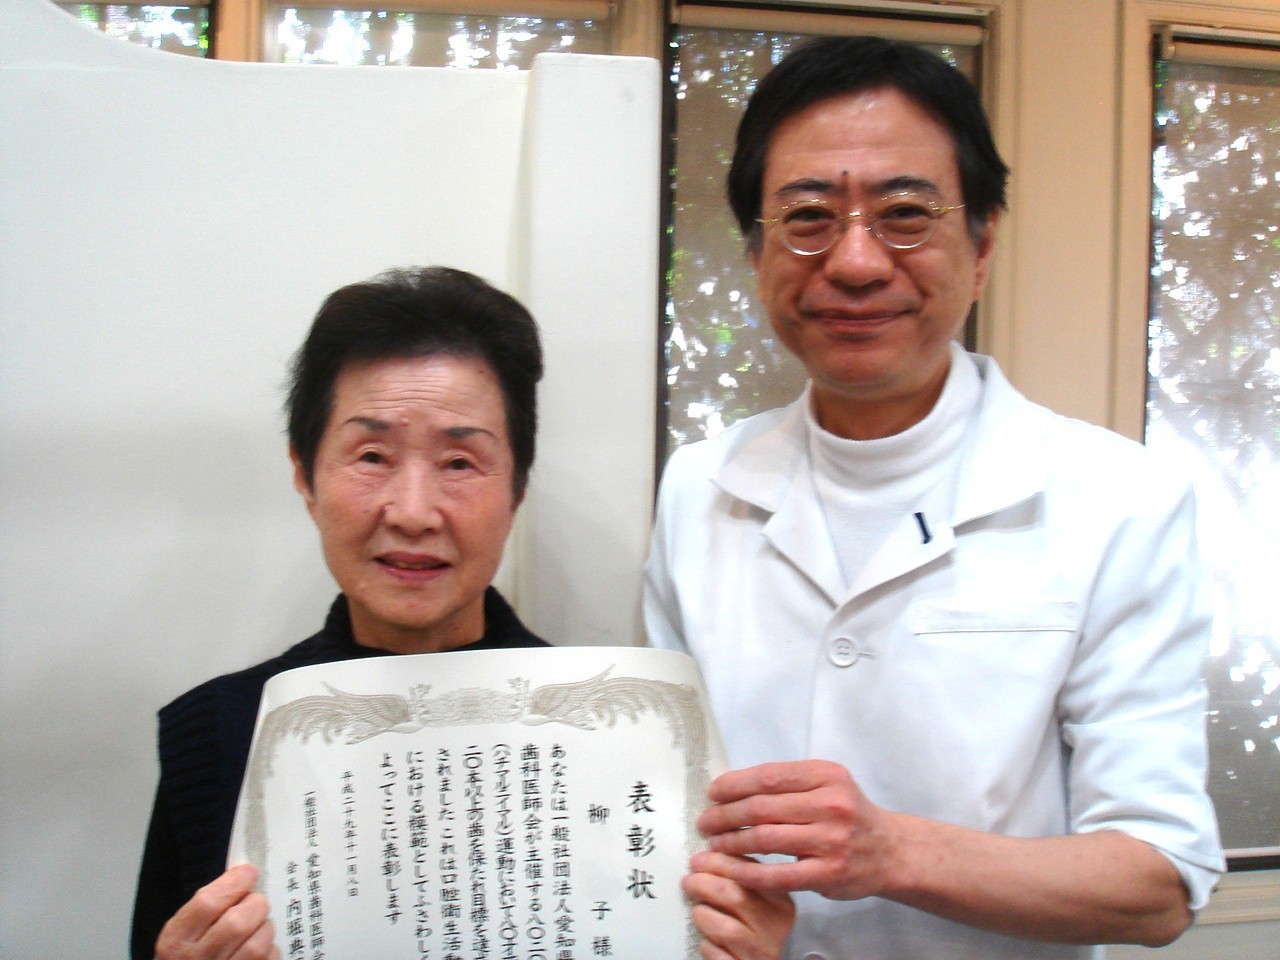 表彰状
柳 子 様
あなたは一般社団法人愛知県
歯科医師会が主催する八〇二〇
(ハチマルニイマル)運動において八〇才で
二〇本以上の歯を保たれ目標を達
されました これは口腔衛生活動
における模範としてふさわしく
よってここに表彰します
平成二十九年十一月八日
一般社団法人 愛知県歯科医師会
会長 内堀典